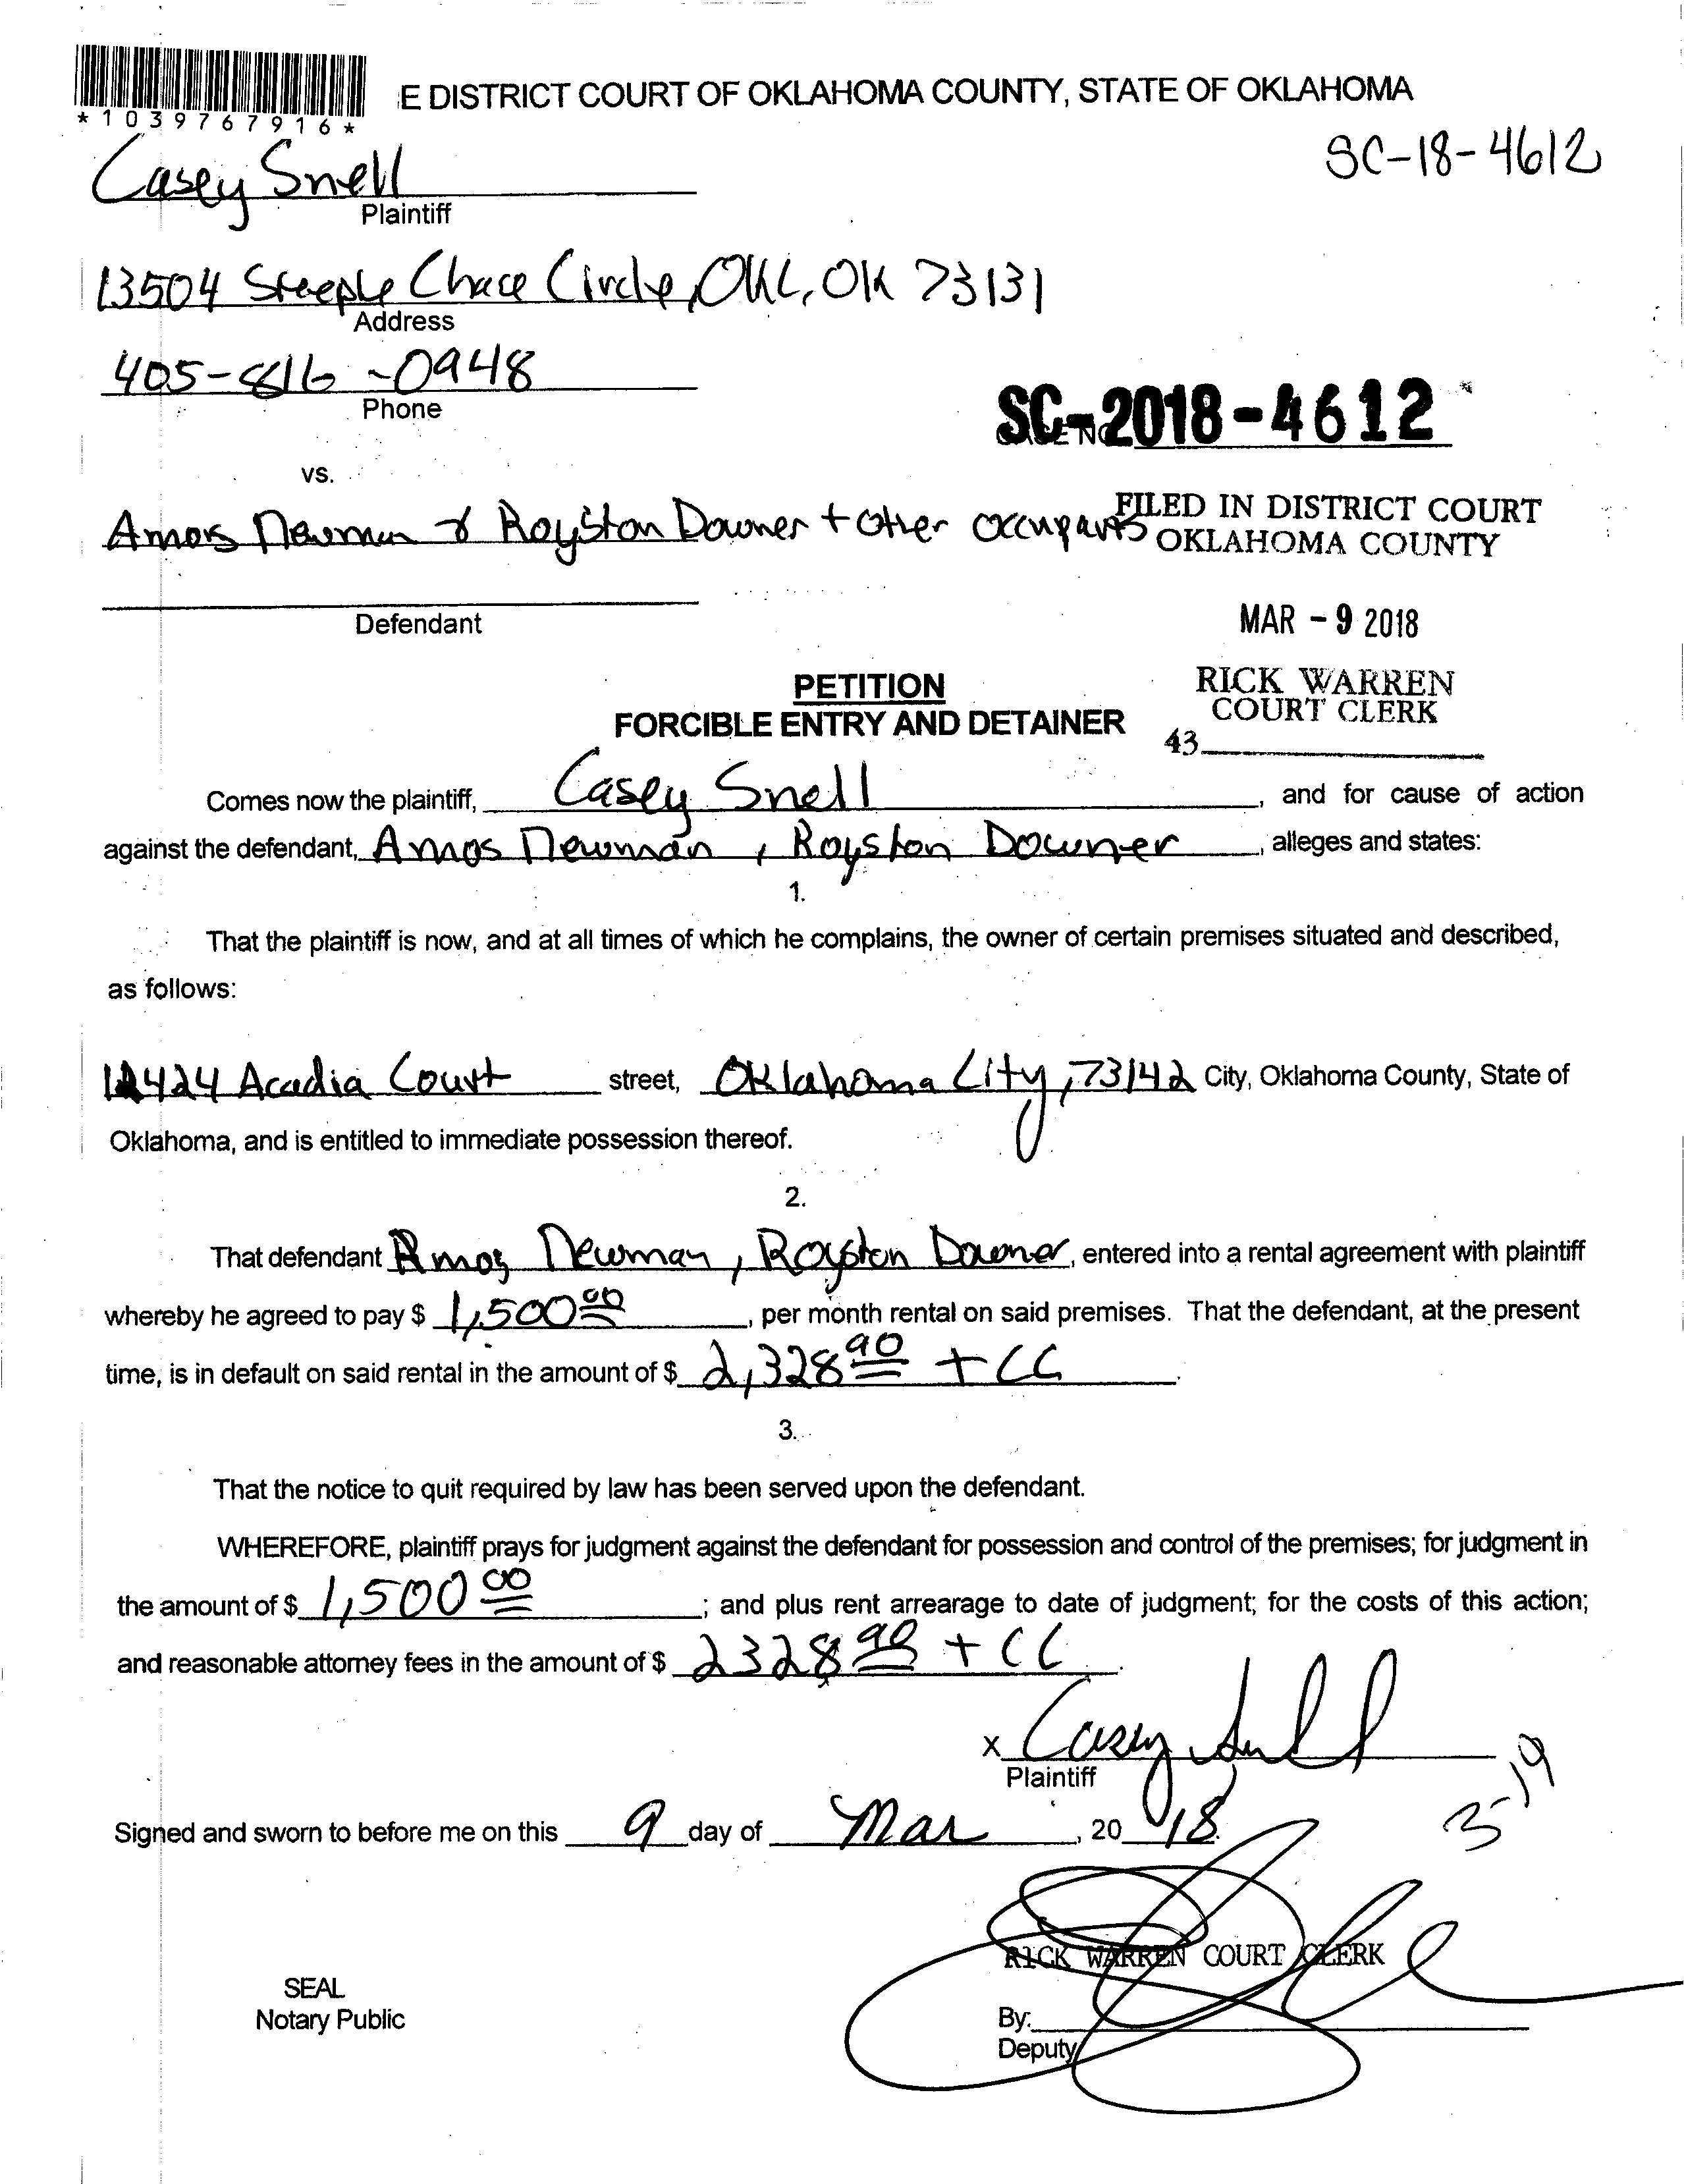 *1039767916*
E DISTRICT COURT OF OKLAHOMA COUNTY, STATE OF OKLAHOMA
SC-18-4612
Casey Snell
Plaintiff
13504 Steeple Chace Circle, OKC, OK 73131
Address
405-816-0948
Phone
SC-2018-4612
vs.
Amos Newman & Royston Downer + other occupants
FILED IN DISTRICT COURT
OKLAHOMA COUNTY
Defendant
MAR - 9 2018
PETITION
FORCIBLE ENTRY AND DETAINER
RICK WARREN
COURT CLERK
43
Comes now the plaintiff, Casey Snell, and for cause of action
against the defendant, Amos Newman, Royston Downer, alleges and states:
1.
That the plaintiff is now, and at all times of which he complains, the owner of certain premises situated and described,
as follows:
12424 Acadia Court street, Oklahoma City, 73142 City, Oklahoma County, State of
Oklahoma, and is entitled to immediate possession thereof.
2.
That defendant Amos Newman, Royston Downer, entered into a rental agreement with plaintiff
whereby he agreed to pay $ 1,500.00, per month rental on said premises. That the defendant, at the present
time, is in default on said rental in the amount of $ 2,328 90 + CC.
3.
That the notice to quit required by law has been served upon the defendant.
WHEREFORE, plaintiff prays for judgment against the defendant for possession and control of the premises; for judgment in
the amount of $ 1,500 00; and plus rent arrearage to date of judgment; for the costs of this action;
and reasonable attorney fees in the amount of $ 2328 90 + CC.
x Casey Snell
Plaintiff
3-19
Signed and sworn to before me on this 9 day of Mar, 20 18.
RICK WARREN COURT CLERK
SEAL
Notary Public
By:
Deputy